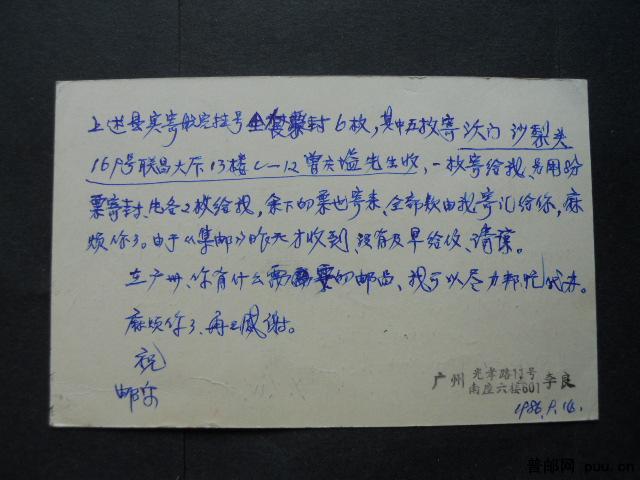 上述是实寄航空挂号全套票封6枚，其中五枚寄澳门沙梨头
16P号联昌大厦13楼C—12曾 先生收，一枚寄给我，另用
票寄封，也各2枚给我，余下的票也寄来，全部款由我寄汇给你，麻
烦你了。由于《集邮》昨天才收到，没有及早给你，请谅。
在广州，你有什么需要的邮品，我可以尽力帮忙代办。
麻烦你了，再之感谢。
祝
邮乐
广州 光孝路11号
南座六楼601 李良
1986.9.14.
普邮网 puu.cn